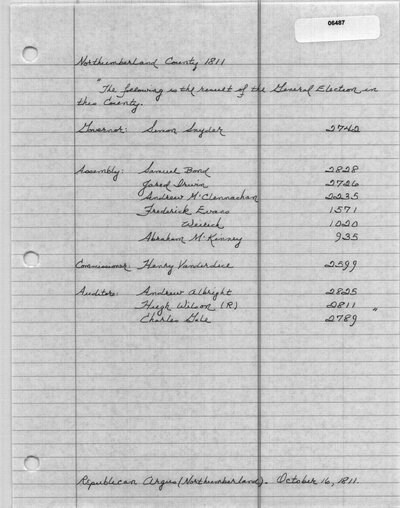 06487
Northumberland County 1811
"The following is the result of the General Election in
this County.
Governor: Simon Snyder 2742
Assembly: Samuel Bond 2828
Jared Irwin 2726
Andrew McClennachan 2235
Frederick Evans 1571
Weirick 1020
Abraham McKinney 935
Commissioner: Henry Vanderslice 2599
Auditors: Andrew Albright 2825
Hugh Wilson (R) 2811
Charles Gale 2789 "
Republican Argus (Northumberland). October 16, 1811.